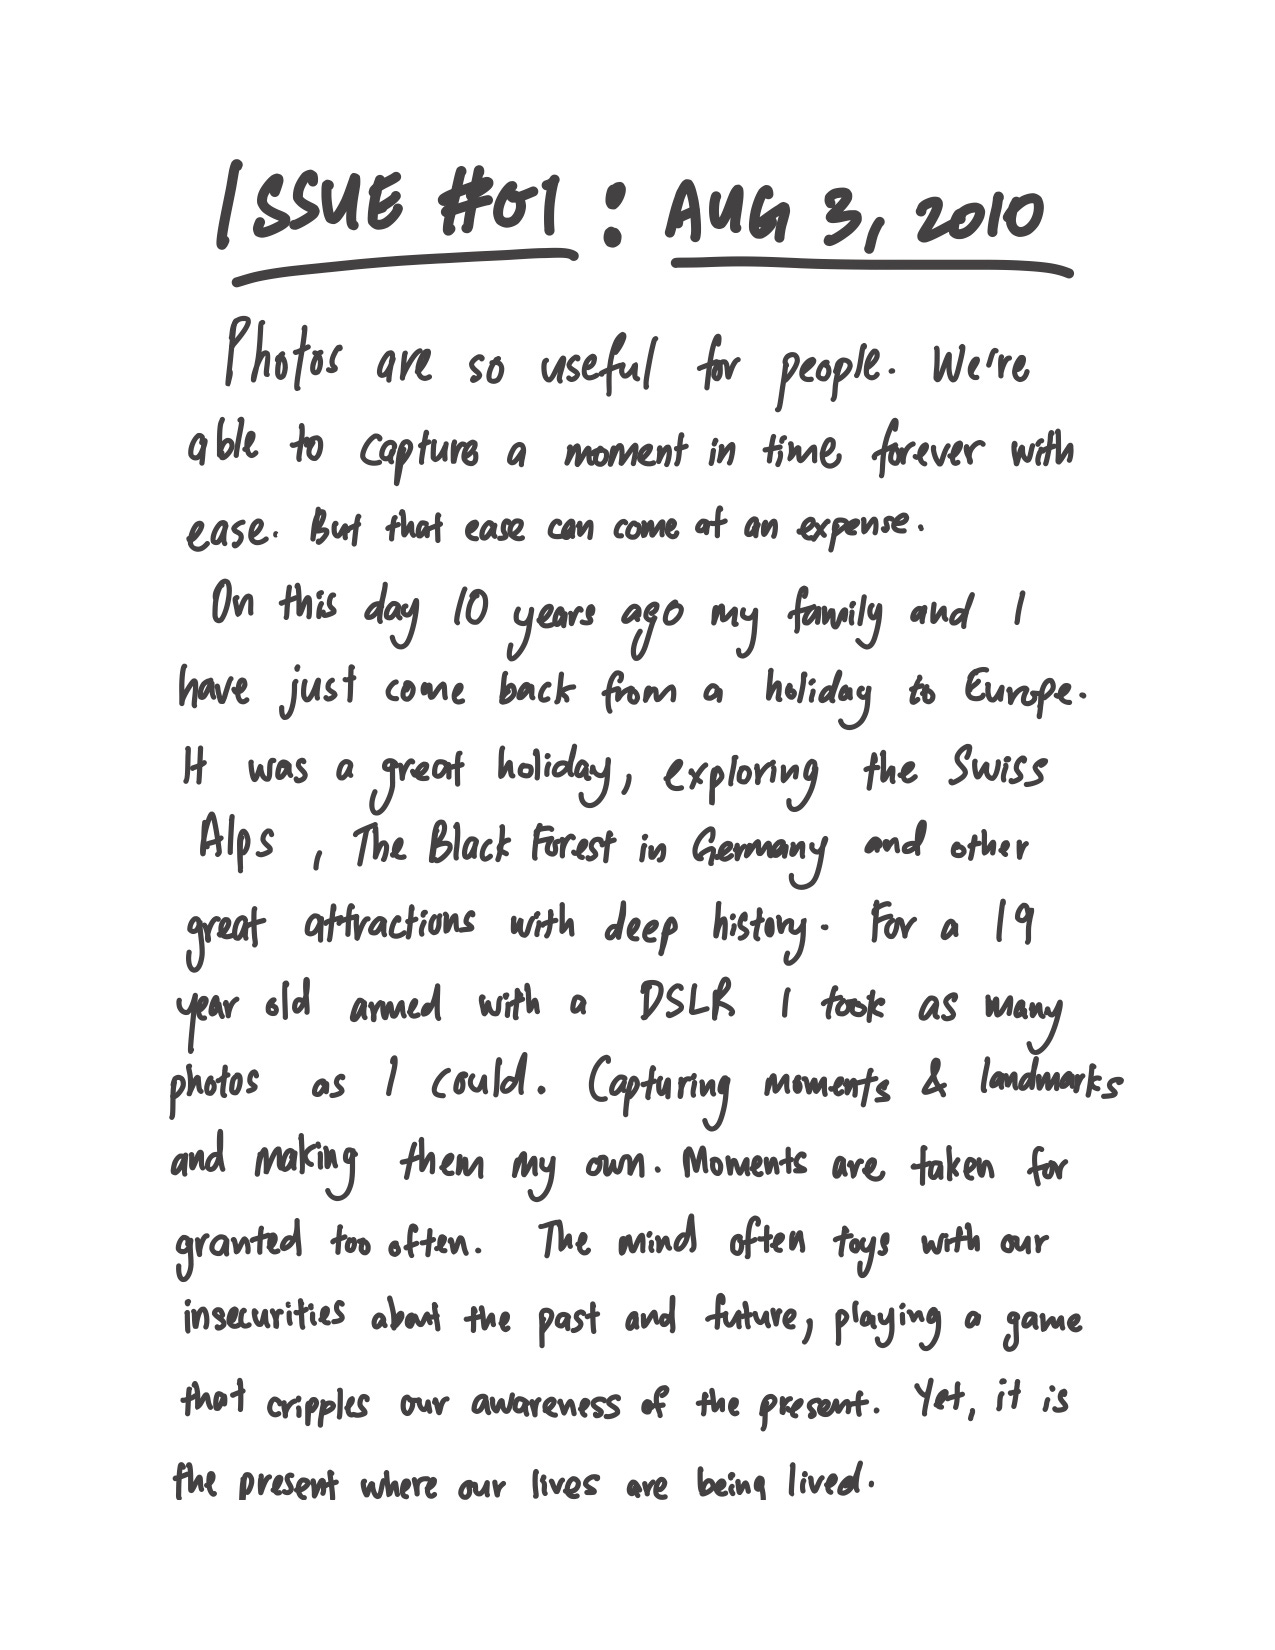 ISSUE #01 : AUG 3, 2010
Photos are so useful for people. We're
able to capture a moment in time forever with
ease. But that ease can come at an expense.
On this day 10 years ago my family and I
have just come back from a holiday to Europe.
It was a great holiday, exploring the Swiss
Alps , The Black Forest in Germany and other
great attractions with deep history. For a 19
year old armed with a DSLR I took as many
photos as I could. Capturing moments & landmarks
and making them my own. Moments are taken for
granted too often. The mind often toys with our
insecurities about the past and future, playing a game
that cripples our awareness of the present. Yet, it is
the present where our lives are being lived.